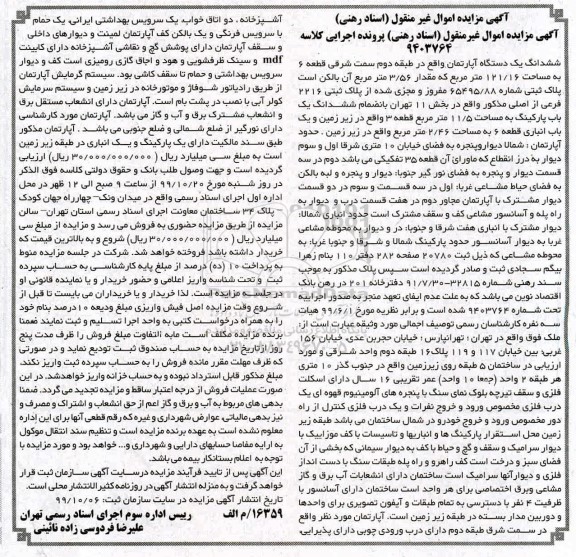 آگهی مزایده اموال غیر منقول (اسناد رهنی)
آگهی مزایده اموال غیرمنقول (اسناد رهنی) پرونده اجرایی کلاسه
۹۴۰۳۷۶۴
ششدانگ یک دستگاه آپارتمان واقع در طبقه دوم سمت شرقی قطعه ۶
به مساحت ۱۲۱/۱۶ متر مربع که مقدار ۳/۵۶ متر مربع آن بالکن است
پلاک ثبتی شماره ۶۵۴۹۵/۸۸ مفروز و مجزی شده از پلاک ثبتی ۲۲۱۶
فرعی از اصلی مذکور واقع در بخش ۱۱ تهران بانضمام ششدانگ یک
باب پارکینگ به مساحت ۱۱/۵ متر مربع قطعه ۳ واقع در زیر زمین و یک
باب انباری قطعه ۶ به مساحت ۲/۴۶ متر مربع واقع در زیر زمین . حدود
آپارتمان : شمالا دیواروپنجره به فضای خیابان ۱۰ متری شرقا اول و سوم
دیوار به درز انقطاع که ماورای آن قطعه ۳۵ تفکیکی می باشد دوم در سه
قسمت دیوار و پنجره به فضای نور گیر جنوبا: دیوار و پنجره و لبه بالکن
به فضای حیاط مشاعی غربا: اول در سه قسمت و سوم در دو قسمت
دیوار مشترک با آپارتمان مجاور دوم در هفت قسمت درب و دیوار به
راه پله و آسانسور مشاعی کف و سقف مشترک است حدود انباری شمالا:
دیوار مشترک با انباری هفت شرقا و جنوبا: در و دیوار به محوطه مشاعی
غربا به دیوار آسانسور حدود پارکینگ شمالا و شرقا و جنوبا غربا: به
محوطه مشاعی که ذیل ثبت ۲۰۷۸۰ صفحه ۲۸۲ دفتر ۱۱۰ بنام زهرا
بیگم سجادی ثبت و صادر گردیده است سپس پلاک مذکور به موجب
سند رهنی شماره ۳۲۸۱۵-۹۱/۷/۳۰ دفترخانه ۲۰۱ در رهن بانک
اقتصاد نوین می باشد که به علت عدم ایفای تعهد منجر به صدور اجراییه
تحت شماره ۹۴۰۳۷۶۴ شده است و برابر نظریه مورخ ۹۹/۶/۱ هیات
سه نفره کارشناسان رسمی توصیف اجمالی مورد وثیقه عبارت است از:
ملک فوق واقع در تهران : تهرانپارس : خیابان حجربن عدی- خیابان ۱۵۶
غربی- بین خیابان ۱۱۷ و ۱۱۹ پلاک ۱۶ طبقه دوم واحد شرقی و مورد
ارزیابی در ساختمان ۵ طبقه روی زیرزمین واقع در جنوب گذر ۱۰ متری
هر طبقه ۲ واحد (جمعا ۱۰ واحد) عمر تقریبی ۱۶ سال دارای اسکلت
فلزی و سقف تیرچه بلوک نمای سنگ با پنجره های آلومینیوم قهوه ای یک
درب فلزی مخصوص ورود و خروج نفرات و یک درب فلزی کنترل از راه
دور مخصوص ورود و خروج خودرو در شمال ساختمان می باشد طبقه زیر
زمین محل استقرار پارکینگ ها و انباریها و تاسیسات با کف موزاییک با
دیوار سرامیک و سقف و گچ و حیاط با کف به دیوار سیمانی که بخشی از آن
فضای سبز و درخت است کف راهرو و راه پله طبقات سنگ با دست انداز
فلزی و دیوارآنها سرامیک است ساختمان دارای انشعابات آب برق و گاز
مشاعی وبرق اختصاصی برای هر واحد است ساختمان دارای آسانسور با
ظرفیت ۴ نفر با دسترسی به تمام طبقات و آیفون تصویری برای واحدها
و دوربین مدار بسته در طبقه زیر زمین است. آپارتمان مورد نظر واقع
در سمت شرق طبقه دوم دارای درب ورودی چوبی دارای پذیرایی،
آشپزخانه ، دو اتاق خواب، یک سرویس بهداشتی ایرانی، یک حمام
با سرویس فرنگی و یک بالکن کف آپارتمان لمینت و دیوارهای داخلی
و سقف آپارتمان دارای پوشش گچ و نقاشی آشپزخانه دارای کابینت
mdf و سینک ظرفشویی و هود و اجاق گازی رومیزی است کف و دیوار
سرویس بهداشتی و حمام تا سقف کاشی بود. سیستم گرمایش آپارتمان
از طریق رادیاتور شوفاژ و موتورخانه در زیر زمین و سیستم سرمایش
کولر آبی با نصب در پشت بام است. آپارتمان دارای انشعاب مستقل برق
و انشعاب مشترک برق و آب و گاز می باشد. آپارتمان مورد کارشناسی
دارای نورگیر از ضلع شمالی و ضلع جنوبی می باشد . آپارتمان مذکور
طبق سند مالکیت دارای یک پارکینگ و یک انباری در طبقه زیر زمین
است به مبلغ سی میلیارد ریال ( ۳۰/۰۰۰/۰۰۰/۰۰۰ ریال) ارزیابی
گردیده است و جهت وصول طلب بانک و حقوق دولتی کلاسه فوق الذکر
در روز شنبه مورخ ۹۹/۱۰/۲۰ از ساعت ۹ صبح الی ۱۲ ظهر در محل
اداره اول اجرای اسناد رسمی واقع در میدان ونک- چهارراه جهان کودک
- پلاک ۳۴ ساختمان معاونت اجرای اسناد رسمی استان تهران- سالن
مزایده از طریق مزایده حضوری به فروش می رسد و مزایده از مبلغ سی
میلیارد ریال ( ۳۰/۰۰۰/۰۰۰/۰۰۰ ریال) شروع و به بالاترین قیمت که
خریدار داشته باشد فروخته خواهد شد. شرکت در جلسه مزایده منوط
به پرداخت ۱۰ (ده) درصد از مبلغ پایه کارشناسی به حساب سپرده
ثبت و تحت شناسه واریز اعلامی و حضور خریدار و یا نماینده قانونی او
در جلسه مزایده است. لذا خریدار و یا خریداران می بایست تا قبل از
شروع وقت مزایده اصل فیش واریزی مبلغ ودیعه ۱۰درصد بنام خود
را به همراه درخواست کتبی به واحد اجرا تسلیم و ثبت نمایند ضمنا
برنده مزایده مکلف است مابه التفاوت مبلغ فروش را ظرف مدت پنج
روز ازتاریخ مزایده به حساب صندوق ثبت تودیع نماید و در صورتی
که ظرف مهلت مقرر مانده فروش را به حساب سپرده ثبت واریز نکند.
مبلغ مذکور قابل استرداد نبوده و به حساب خزانه واریز خواهدشد. در این
صورت عملیات فروش از درجه اعتبار ساقط و مزایده تجدید می گردد. ضمنا
بدهی های مربوط به آب و برق و گاز اعم از حق انشعاب و اشتراک و مصرف و
نیز بدهی مالیاتی عوارض شهرداری و غیره که رقم قطعی آنها برای این اداره
معلوم نشده است به عهده برنده مزایده است و تنظیم سند انتقال موکول
به ارایه مفاصا حسابهای دارایی و شهرداری و... خواهد بود و مورد مزایده با
توجه به اعلام بستانکار بیمه می باشد.
این آگهی پس از تایید فرآیند مزایده درسایت آگهی سازمان ثبت قرار
خواهد گرفت و به منزله انتشار آگهی در روزنامه کثیر الانتشار محلی است.
تاریخ انتشار آگهی مزایده در سایت سازمان ثبت: ۹۹/۱۰/۰۶
۱۶۳۵۹/م الف
رییس اداره سوم اجرای اسناد رسمی تهران
علیرضا فردوسی زاده نائینی